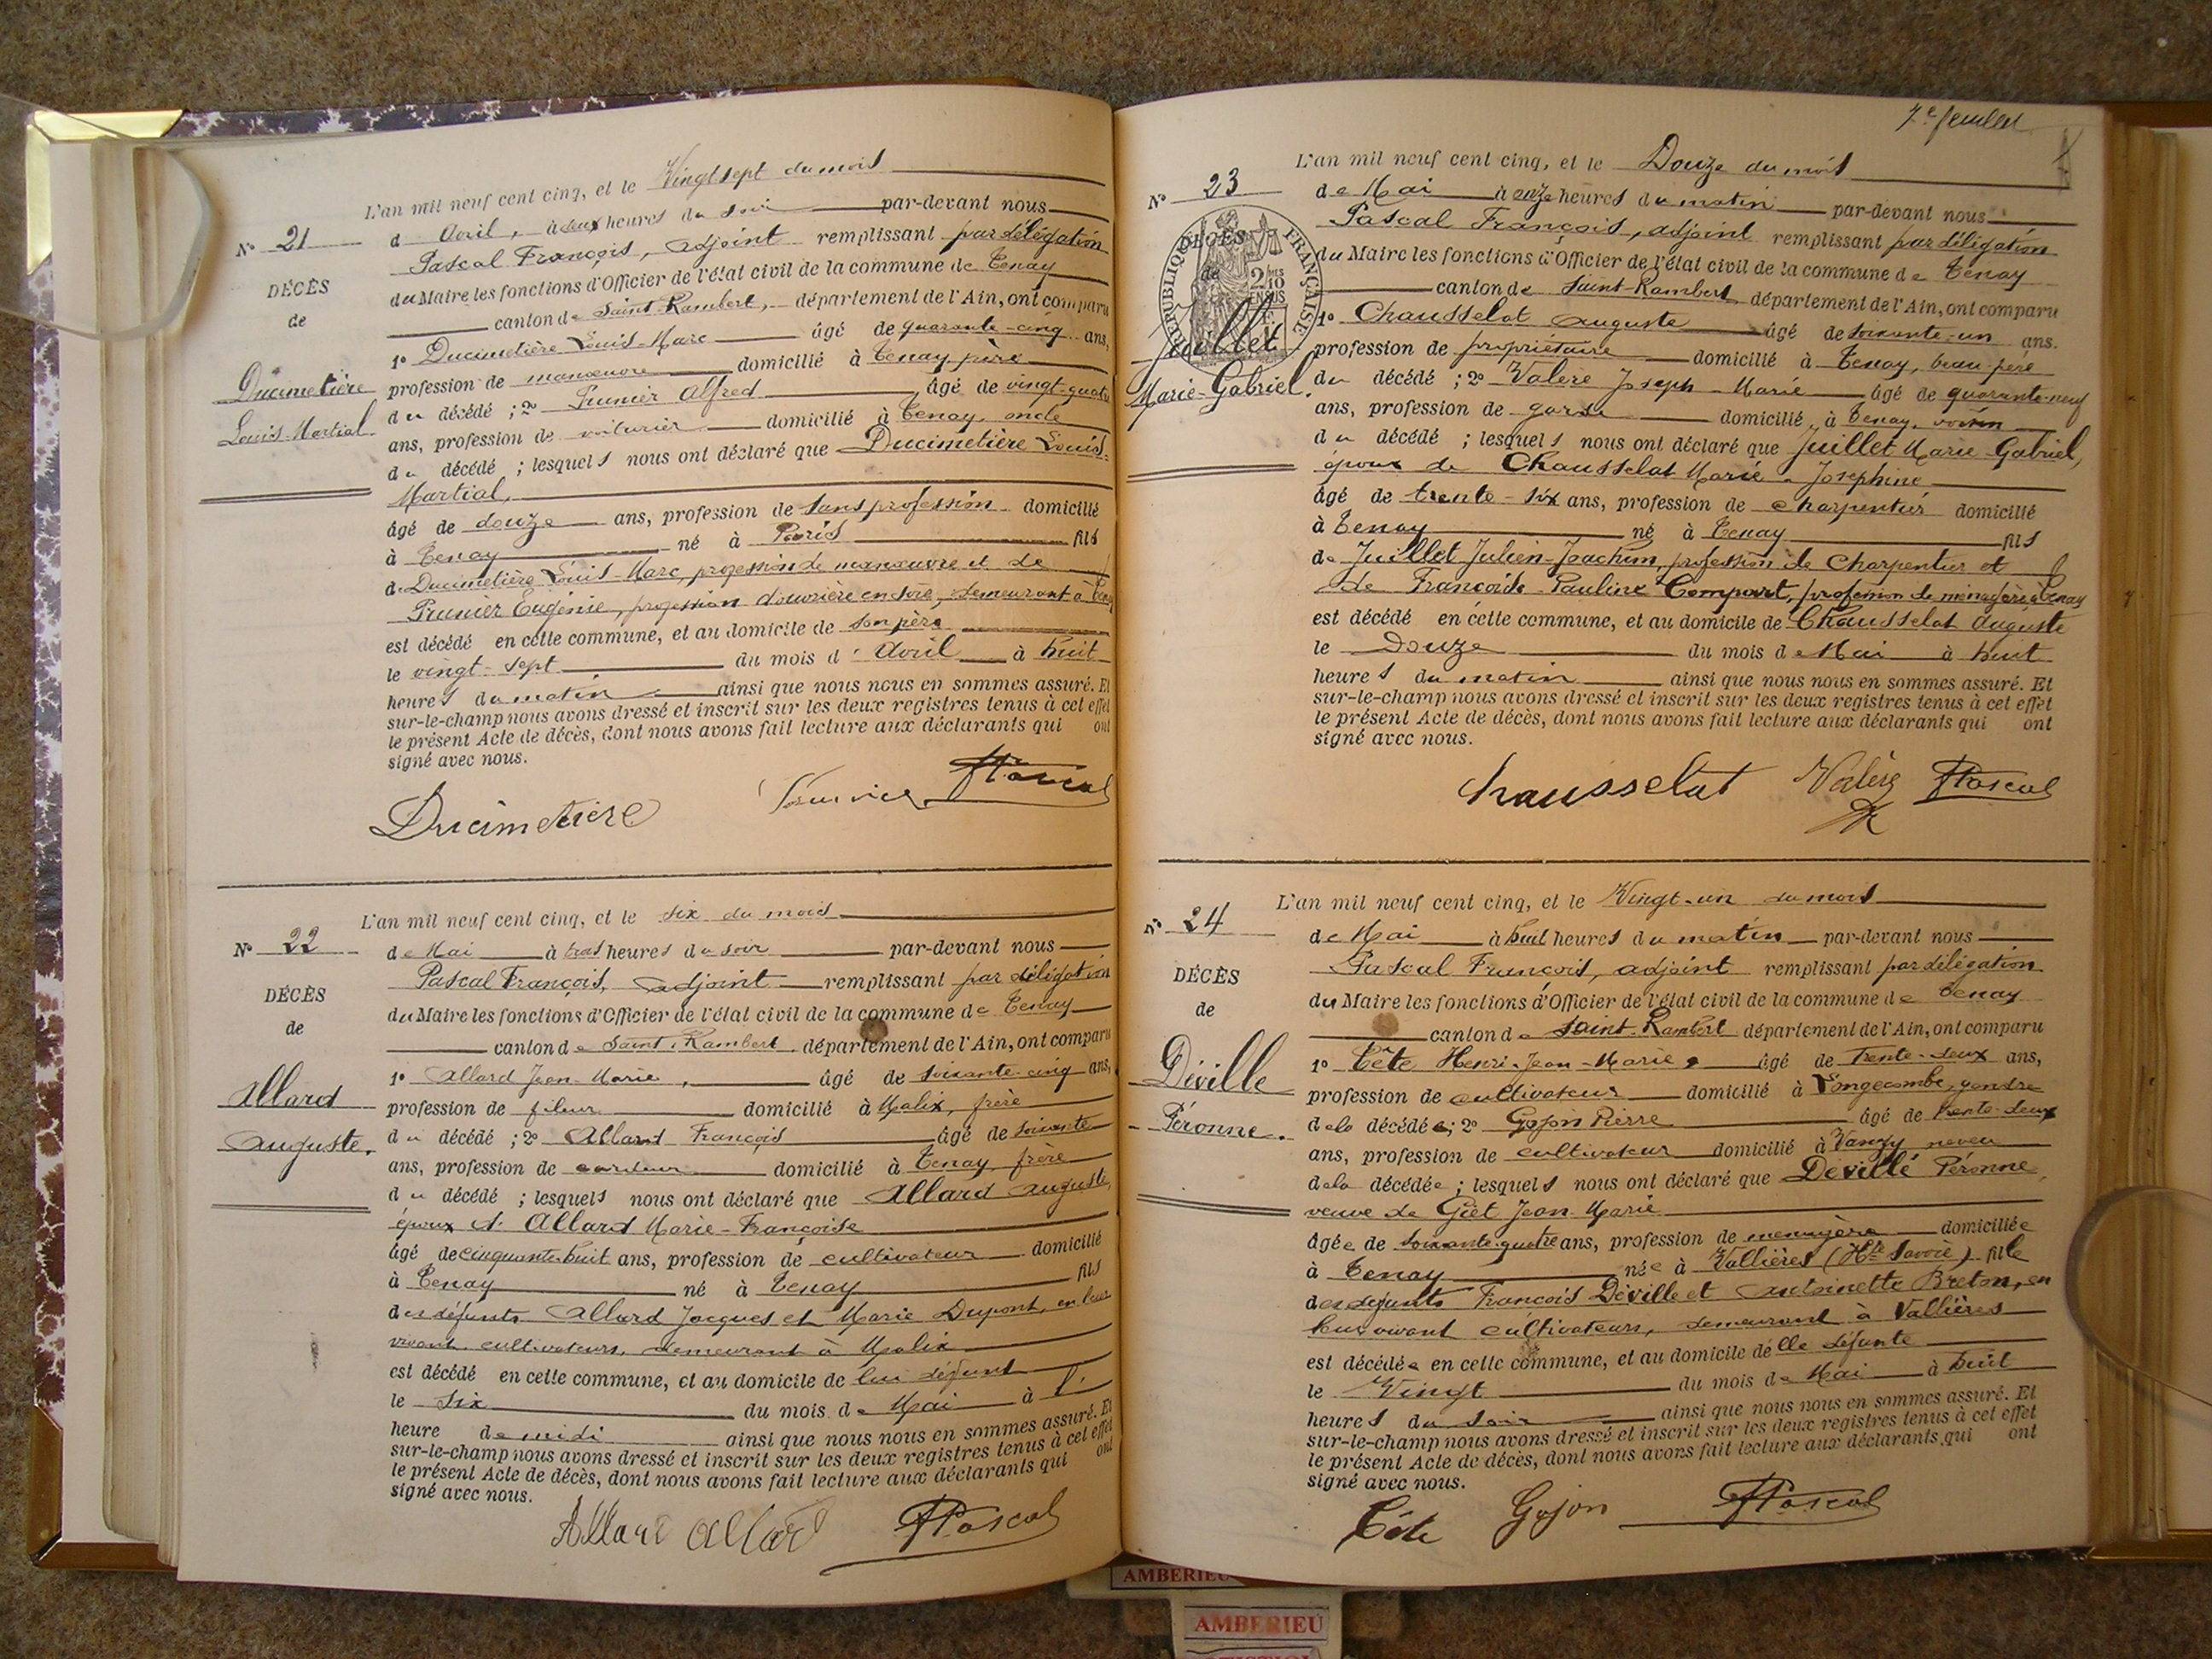 L'an mil neuf cent cinq, et le Vingt sept du mois
N° 21
d'Avril, à deux heures du soir par-devant nous
Pascal François, adjoint remplissant par délégation
DÉCÈS
du Maire les fonctions d'Officier de l'état civil de la commune de Tenay
de
canton de Saint-Rambert, département de l'Ain, ont comparu
1° Ducimetière Louis-Marc âgé de quarante-cinq ans,
Ducimetière
profession de manœuvre domicilié à Tenay père
Louis-Martial
du décédé ; 2° Prunier Alfred âgé de vingt-quatre
ans, profession de voiturier domicilié à Tenay, oncle
du décédé ; lesquels nous ont déclaré que Ducimetière Louis-
Martial,
âgé de douze ans, profession de sans profession domicilié
à Tenay né à Paris fils
de Ducimetière Louis-Marc, profession de manœuvre et de
Prunier Eugénie, profession d'ouvrière en soie, demeurant à Tenay
est décédé en cette commune, et au domicile de son père
le vingt-sept du mois d'Avril à huit
heures du matin ainsi que nous nous en sommes assuré. Et
sur-le-champ nous avons dressé et inscrit sur les deux registres tenus à cet effet
le présent Acte de décès, dont nous avons fait lecture aux déclarants qui ont
signé avec nous.
Ducimetière Prunier Pascal
L'an mil neuf cent cinq, et le six du mois
N° 22
de Mai à trois heures du soir par-devant nous
Pascal François, adjoint remplissant par délégation
DÉCÈS
du Maire les fonctions d'Officier de l'état civil de la commune de Tenay
de
canton de Saint-Rambert, département de l'Ain, ont comparu
1° Allard Jean-Marie, âgé de soixante-cinq ans,
Allard
profession de fileur domicilié à Malix, frère
Auguste.
du décédé ; 2° Allard François âgé de soixante
ans, profession de cardeur domicilié à Tenay, frère
du décédé ; lesquels nous ont déclaré que Allard Auguste,
époux d. Allard Marie-Françoise
âgé de cinquante-huit ans, profession de cultivateur domicilié
à Tenay né à Tenay fils
des défunts Allard Jacques et Marie Dupont, en leur
vivant cultivateurs, demeurant à Malix
est décédé en cette commune, et au domicile de lui défunt
le six du mois de Mai à l'
heure de midi ainsi que nous nous en sommes assuré. Et
sur-le-champ nous avons dressé et inscrit sur les deux registres tenus à cet effet
le présent Acte de décès, dont nous avons fait lecture aux déclarants qui ont
signé avec nous.
Allard Allard Pascal
7e feuillet
L'an mil neuf cent cinq, et le Douze du mois
N° 23
de Mai à onze heures du matin par-devant nous
Pascal François, adjoint remplissant par délégation
DÉCÈS
du Maire les fonctions d'Officier de l'état civil de la commune de Tenay
de
RÉPUBLIQUE FRANÇAISE
canton de Saint-Rambert département de l'Ain, ont comparu
1° Chausselat Auguste âgé de soixante-un ans.
Juillet
profession de propriétaire domicilié à Tenay, beau-père
Marie-Gabriel.
du décédé ; 2° Valère Joseph-Marie âgé de quarante-neuf
ans, profession de garde domicilié à Tenay, voisin
du décédé ; lesquels nous ont déclaré que Juillet Marie-Gabriel,
époux de Chausselat Marie-Josephine
âgé de trente-six ans, profession de charpentier domicilié
à Tenay né à Tenay fils
de Juillet Julien-Joachim, profession de Charpentier et
de Françoise-Pauline Compart, profession de ménagère à Tenay
est décédé en cette commune, et au domicile de Chausselat Auguste
le Douze du mois de Mai à huit
heures du matin ainsi que nous nous en sommes assuré. Et
sur-le-champ nous avons dressé et inscrit sur les deux registres tenus à cet effet
le présent Acte de décès, dont nous avons fait lecture aux déclarants qui ont
signé avec nous.
Chausselat Valère Pascal
L'an mil neuf cent cinq, et le Vingt-un du mois
N° 24
de Mai à huit heures du matin par-devant nous
Pascal François, adjoint remplissant par délégation
DÉCÈS
du Maire les fonctions d'Officier de l'état civil de la commune de Tenay
de
canton de Saint-Rambert département de l'Ain, ont comparu
1° Tête Henri-Jean-Marie âgé de Trente-deux ans,
Déville
profession de cultivateur domicilié à Longecombe, gendre
Péronne.
de la décédée ; 2° Gojon Pierre âgé de trente-deux
ans, profession de cultivateur domicilié à Vanzy neveu
de la décédée ; lesquels nous ont déclaré que Déville Péronne,
veuve de Giet Jean-Marie
âgée de soixante-quatre ans, profession de ménagère domiciliée
à Tenay née à Vallières (Hte Savoie) fille
des défunts François Déville et Antoinette Breton, en
leur vivant cultivateurs, demeurant à Vallières
est décédée en cette commune, et au domicile d'elle défunte
le Vingt du mois de Mai à huit
heures du soir ainsi que nous nous en sommes assuré. Et
sur-le-champ nous avons dressé et inscrit sur les deux registres tenus à cet effet
le présent Acte de décès, dont nous avons fait lecture aux déclarants qui ont
signé avec nous.
Tête Gojon Pascal
AMBERIEU
AMBERIEU